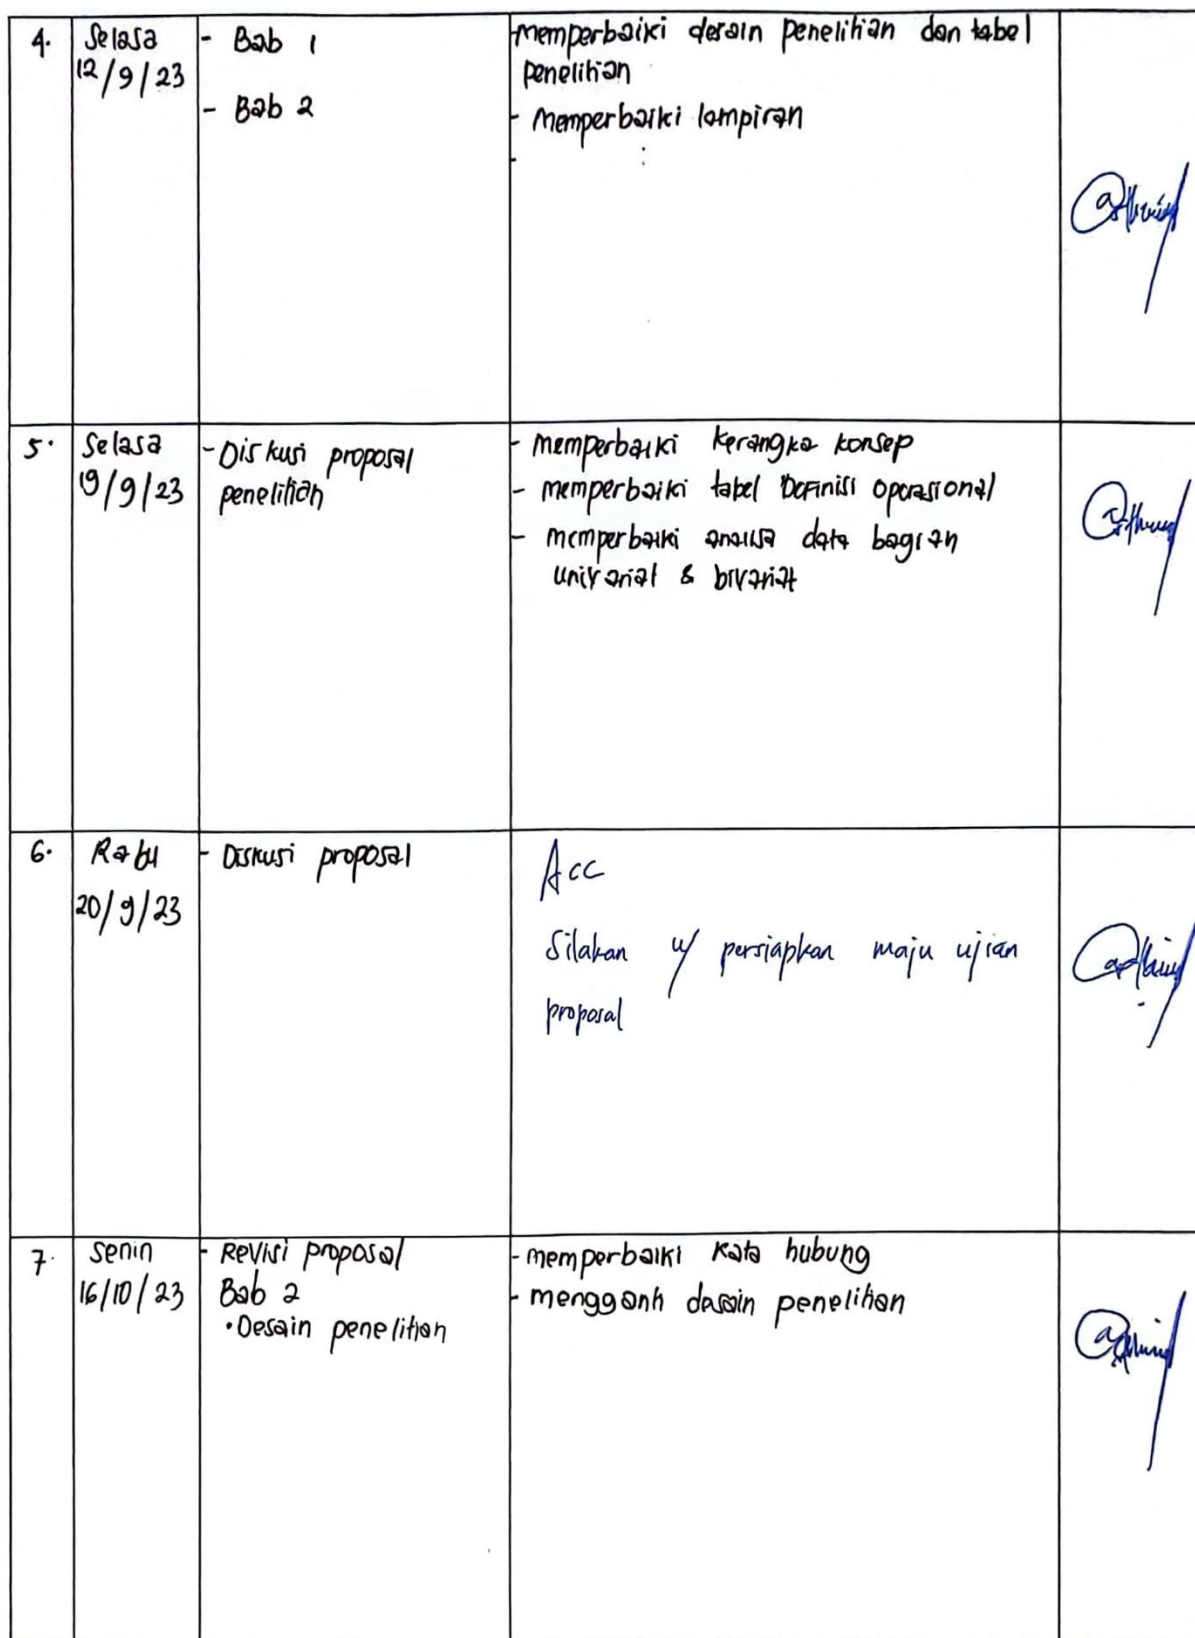 4.
Selasa
12/9/23
- Bab 1
- Bab 2
-memperbaiki desain penelitian dan tabel
penelitian
- Memperbaiki lampiran
-
5.
Selasa
19/9/23
- Diskusi proposal
penelitian
- memperbaiki kerangka konsep
- memperbaiki tabel Definisi Operasional
- memperbaiki analisa data bagian
univariat & bivariat
6.
Rabu
20/9/23
- Diskusi proposal
Acc
Silakan u/ persiapkan maju ujian
proposal
7.
Senin
16/10/23
- Revisi proposal
Bab 2
• Desain penelitian
- memperbaiki kata hubung
- mengganti desain penelitian